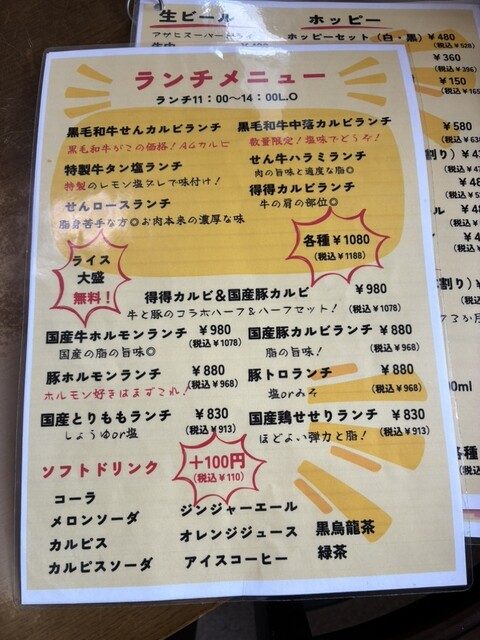 生ビール
ホッピー
ホッピーセット(白・黒) ¥480
(税込¥528)
¥360
(税込¥396)
¥150
¥580
ランチメニュー
ランチ11:00〜14:00L.O
黒毛和牛せんカルビランチ
黒毛和牛がこの価格!AGカルビ
黒毛和牛中落カルビランチ
数量限定!塩味でどうぞ!
特製牛タン塩ランチ
特製のレモン塩ダレで味付け!
せん牛ハラミランチ
肉の旨味と適度な脂◎
せんロースランチ
脂身苦手な方◎お肉本来の濃厚な味
得得カルビランチ
牛の肩の部位◎
各種¥1080
(税込¥1188)
ライス
大盛
無料!
得得カルビ&国産豚カルビ ¥980
牛と豚のコラボハーフ&ハーフセット! (税込¥1078)
国産牛ホルモンランチ ¥980
国産の脂の旨味◎ (税込¥1078)
国産豚カルビランチ ¥880
脂の旨味! (税込¥968)
豚ホルモンランチ ¥880
ホルモン好きはまずこれ! (税込¥968)
豚トロランチ ¥880
塩orみそ (税込¥968)
国産とりももランチ ¥830
しょうゆor塩 (税込¥913)
国産鶏せせりランチ ¥830
ほどよい弾力と脂! (税込¥913)
ソフトドリンク
+100円
(税込¥110)
コーラ
メロンソーダ
カルピス
カルピスソーダ
ジンジャーエール
オレンジジュース
アイスコーヒー
黒烏龍茶
緑茶